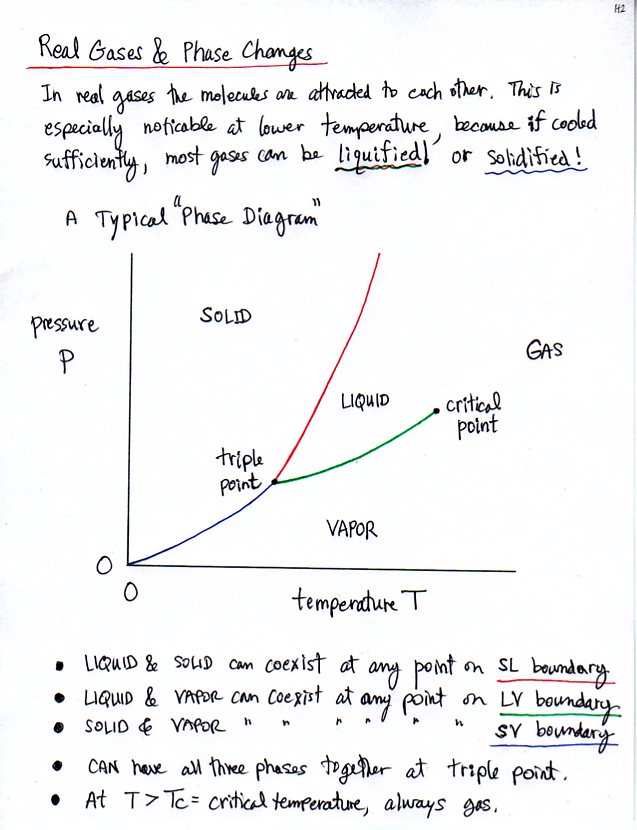 H2
Real Gases & Phase Changes
In real gases the molecules are attracted to each other. This is
especially noticable at lower temperature, because if cooled
sufficiently, most gases can be liquified! or solidified!
A Typical "Phase Diagram"
SOLID
pressure
P
GAS
LIQUID
critical
point
triple
point
VAPOR
O
O
temperature T
• LIQUID & SOLID can coexist at any point on SL boundary
• LIQUID & VAPOR can coexist at any point on LV boundary
• SOLID & VAPOR " " " " " " SV boundary
• CAN have all three phases together at triple point.
• At T > Tc = critical temperature, always gas.